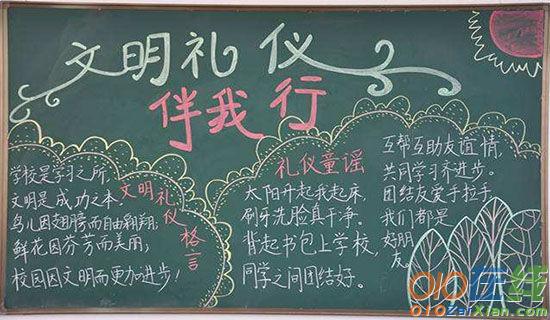 文明礼仪
伴我行
学校是学习之所,
文明是成功之本.
鸟儿因翅膀而自由翱翔;
鲜花因芬芳而美丽;
校园因文明而更加进步!
文明礼仪格言
礼仪童谣
太阳升起我起床,
刷牙洗脸真干净.
背起书包上学校,
同学之间团结好.
互帮互助友谊情,
共同学习齐进步.
团结友爱手拉手,
我们都是
好朋友.
010在线
010ZaiXian.com